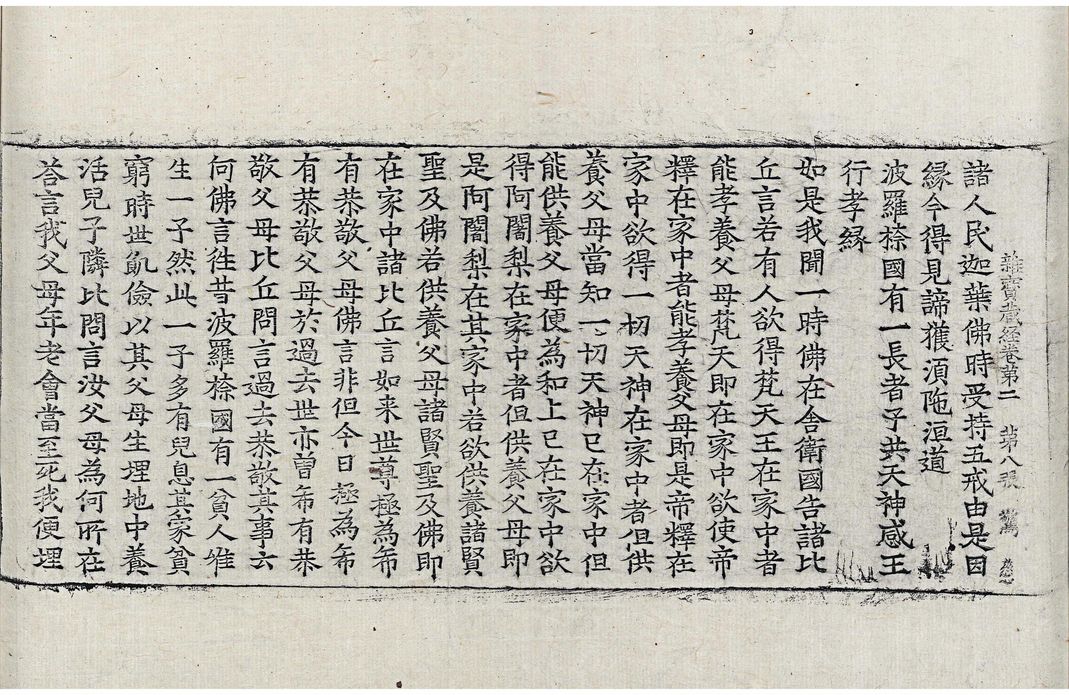 雜寶藏経卷第二 苐八張 驚
諸人民迦葉佛時受持五戒由是因
縁今得見諦獲湏陁洹道
波羅㮈國有一長者子共天神感王
行孝縁
如是我聞一時佛在舎衛國告諸比
丘言若有人欲得梵天王在家中者
能孝養父母梵天即在家中欲使帝
釋在家中者能孝養父母即是帝釋在
家中欲得一切天神在家中者但供
養父母當知一切天神已在家中但
能供養父母便為和上已在家中欲
得阿闍梨在家中者但供養父母即
是阿闍梨在其家中若欲供養諸賢
聖及佛若供養父母諸賢聖及佛即
在家中諸比丘言如来世尊極為希
有恭敬父母佛言非但今日極為希
有恭敬父母於過去世亦曽希有恭
敬父母比丘問言過去恭敬其事云
何佛言徃昔波羅㮈國有一貧人唯
生一子然此一子多有兒息其家貧
窮時世飢儉以其父母生埋地中養
活兒子隣比問言汝父母為何所在
荅言我父母年老會當至死我便埋